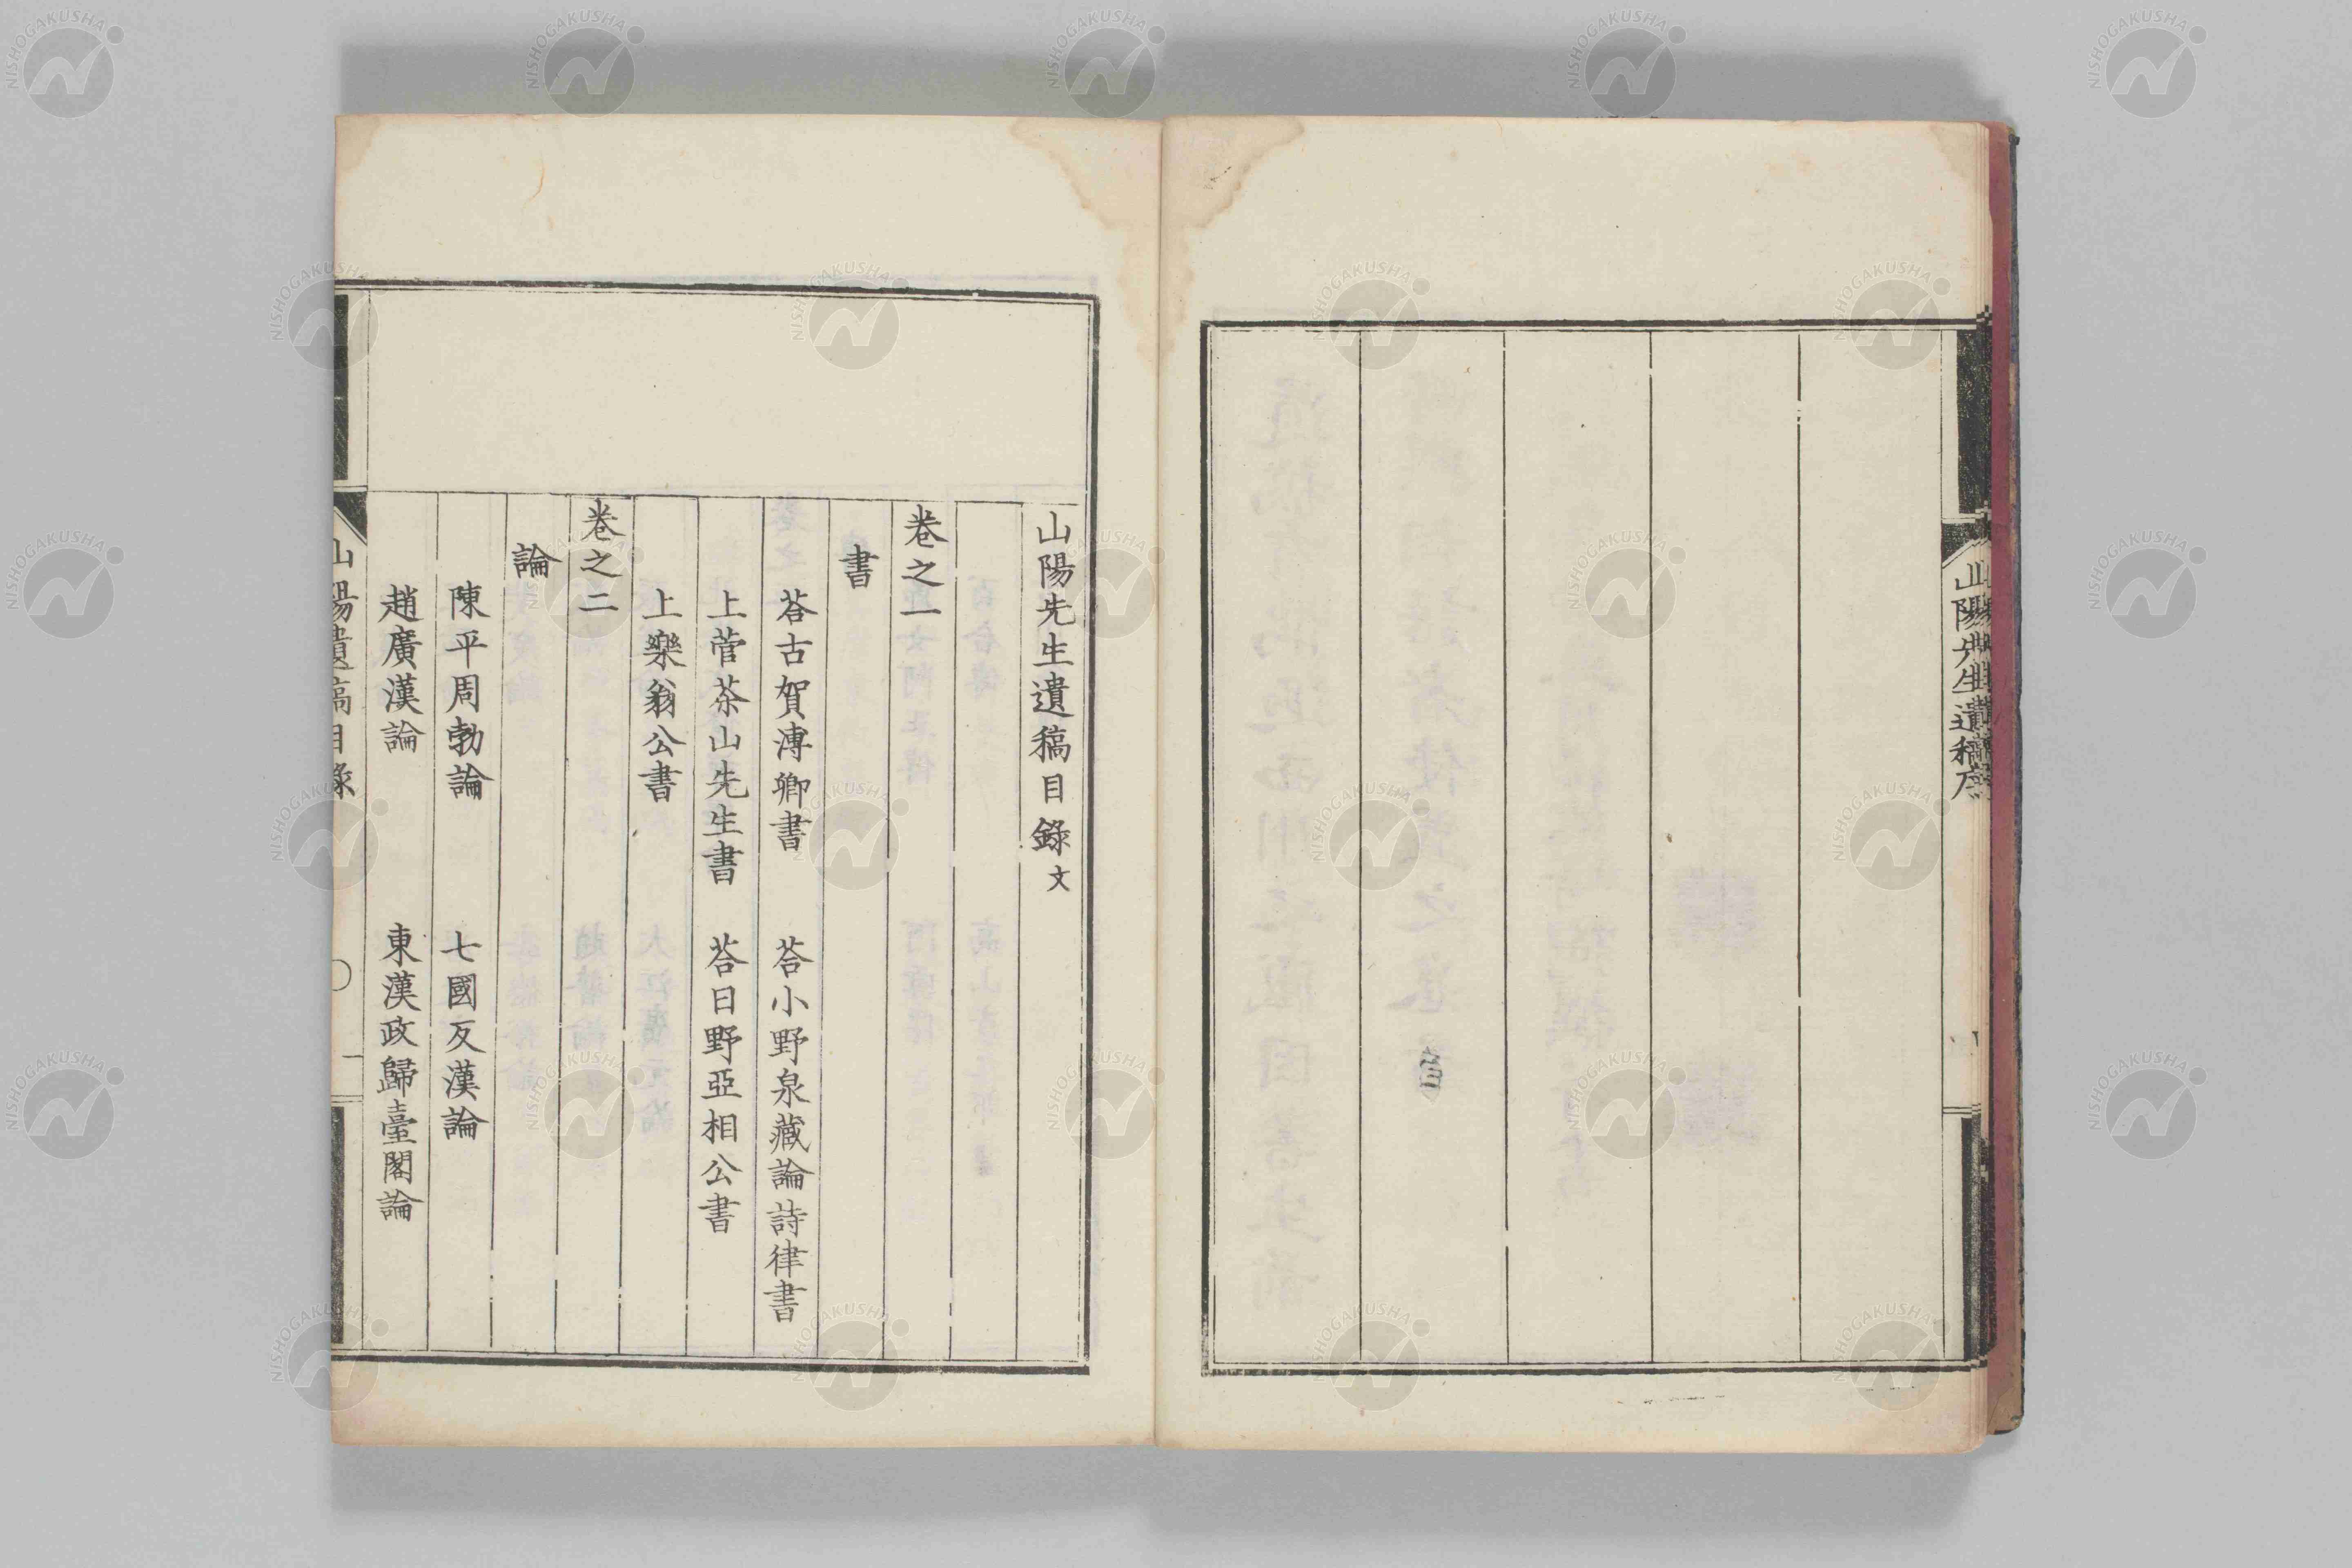 山陽先生遺稿序
山陽先生遺稿目錄 文
卷之一
書
荅古賀溥卿書 荅小野泉藏論詩律書
上菅茶山先生書 荅日野亞相公書
上樂翁公書
卷之二
論
陳平周勃論 七國反漢論
趙廣漢論 東漢政歸臺閣論
山陽遺稿目錄 一
NISHOGAKUSHA